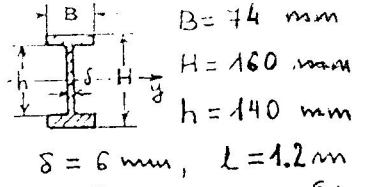 B
h
δ
H
y
B = 74 mm
H = 160 mm
h = 140 mm
δ = 6 mm, l = 1.2 m